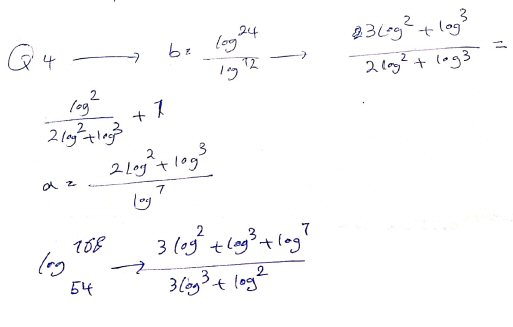 Q4 → b = log²⁴ / log¹² → 3log² + log³ / 2log² + log³ =
log² / 2log² + log³ + 1
a = 2log² + log³ / log⁷
log 168 54 → 3log² + log³ + log⁷ / 3log³ + log²